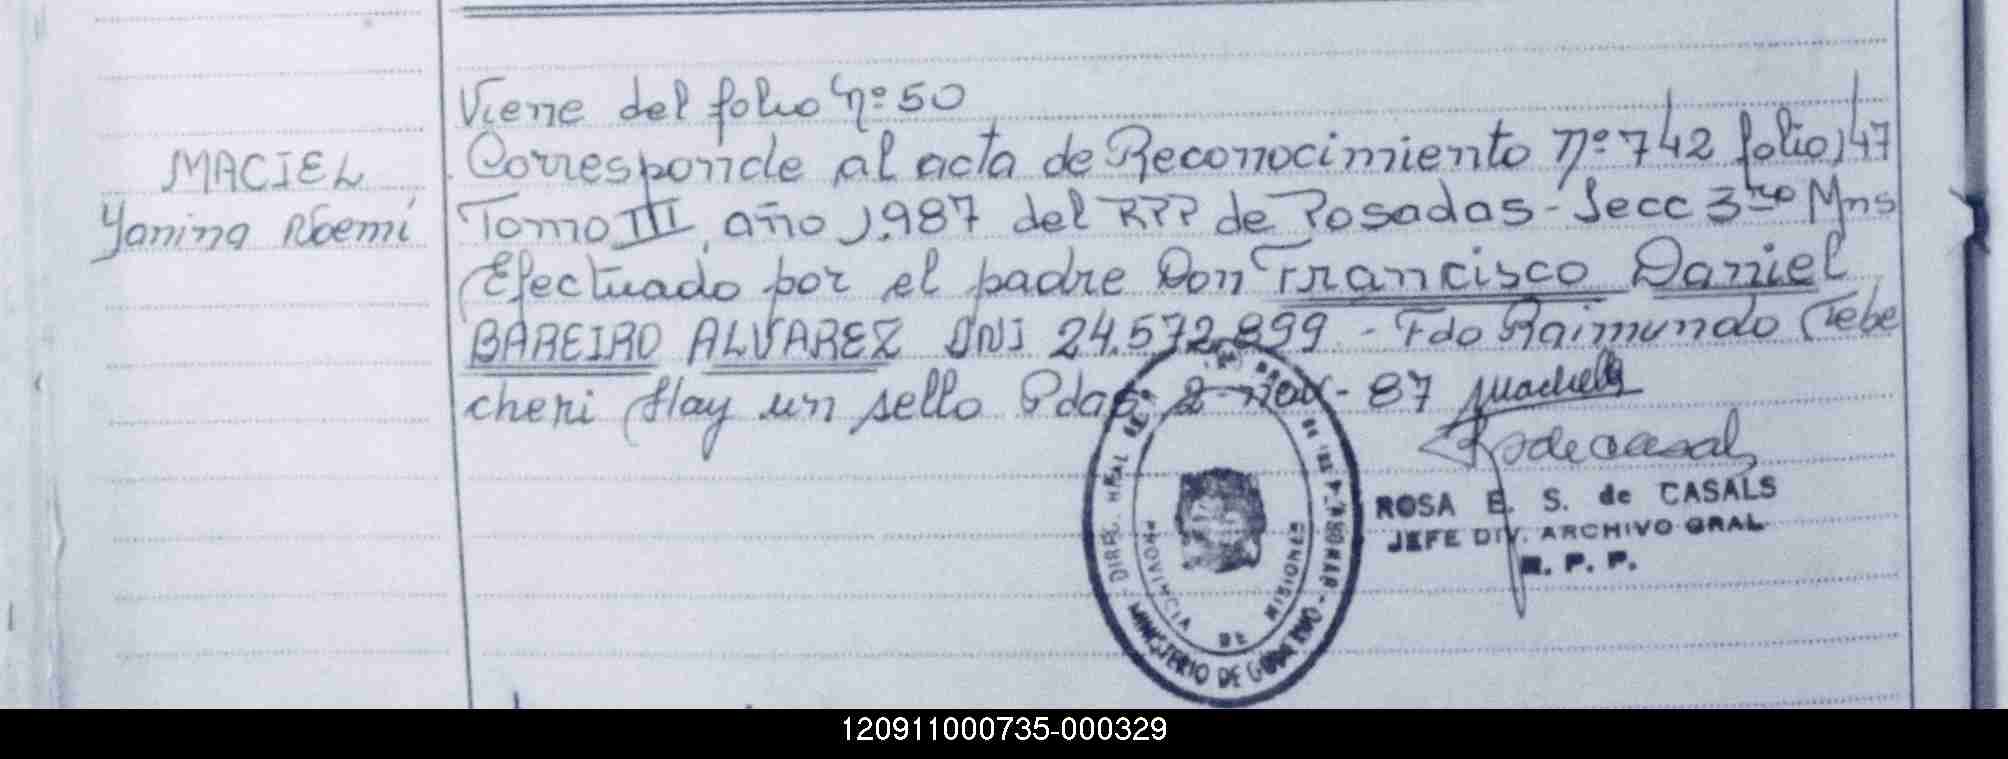 Viene del folio Nº 50
MACIEL
Yanina Noemí
Corresponde al acta de Reconocimiento Nº 742 folio 147
Tomo III, año 1.987 del RPP de Posadas - Secc 3ra Mns
Efectuado por el padre Don Francisco Daniel
BAREIRO ALVAREZ DNI 24.572.899 - Fdo Raimundo
cheri Hay un sello Pdas 2-nov-87
ROSA E. S. de CASALS
JEFE DIV. ARCHIVO GRAL
R. P. P.
DIREC. GRAL DE
PROVINCIA DE MISIONES
MINISTERIO DE GOBIERNO
120911000735-000329